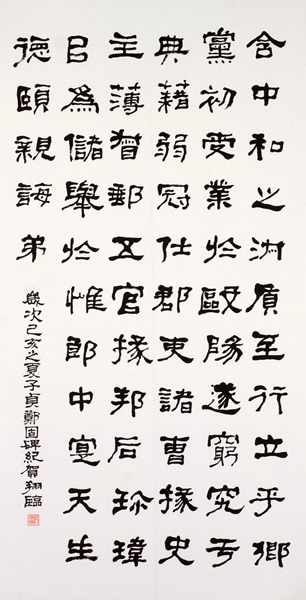 含中和之淑質至行立乎鄉
黨初受業於歐陽遂窮究于
典藉弱冠仕郡吏諸曹掾史
主薄督郵五官掾邦后珍瑋
㠯為儲舉於惟郎中寔天生
德頤親誨弟
歲次己亥之夏子貞鄭固碑紀賀翔臨